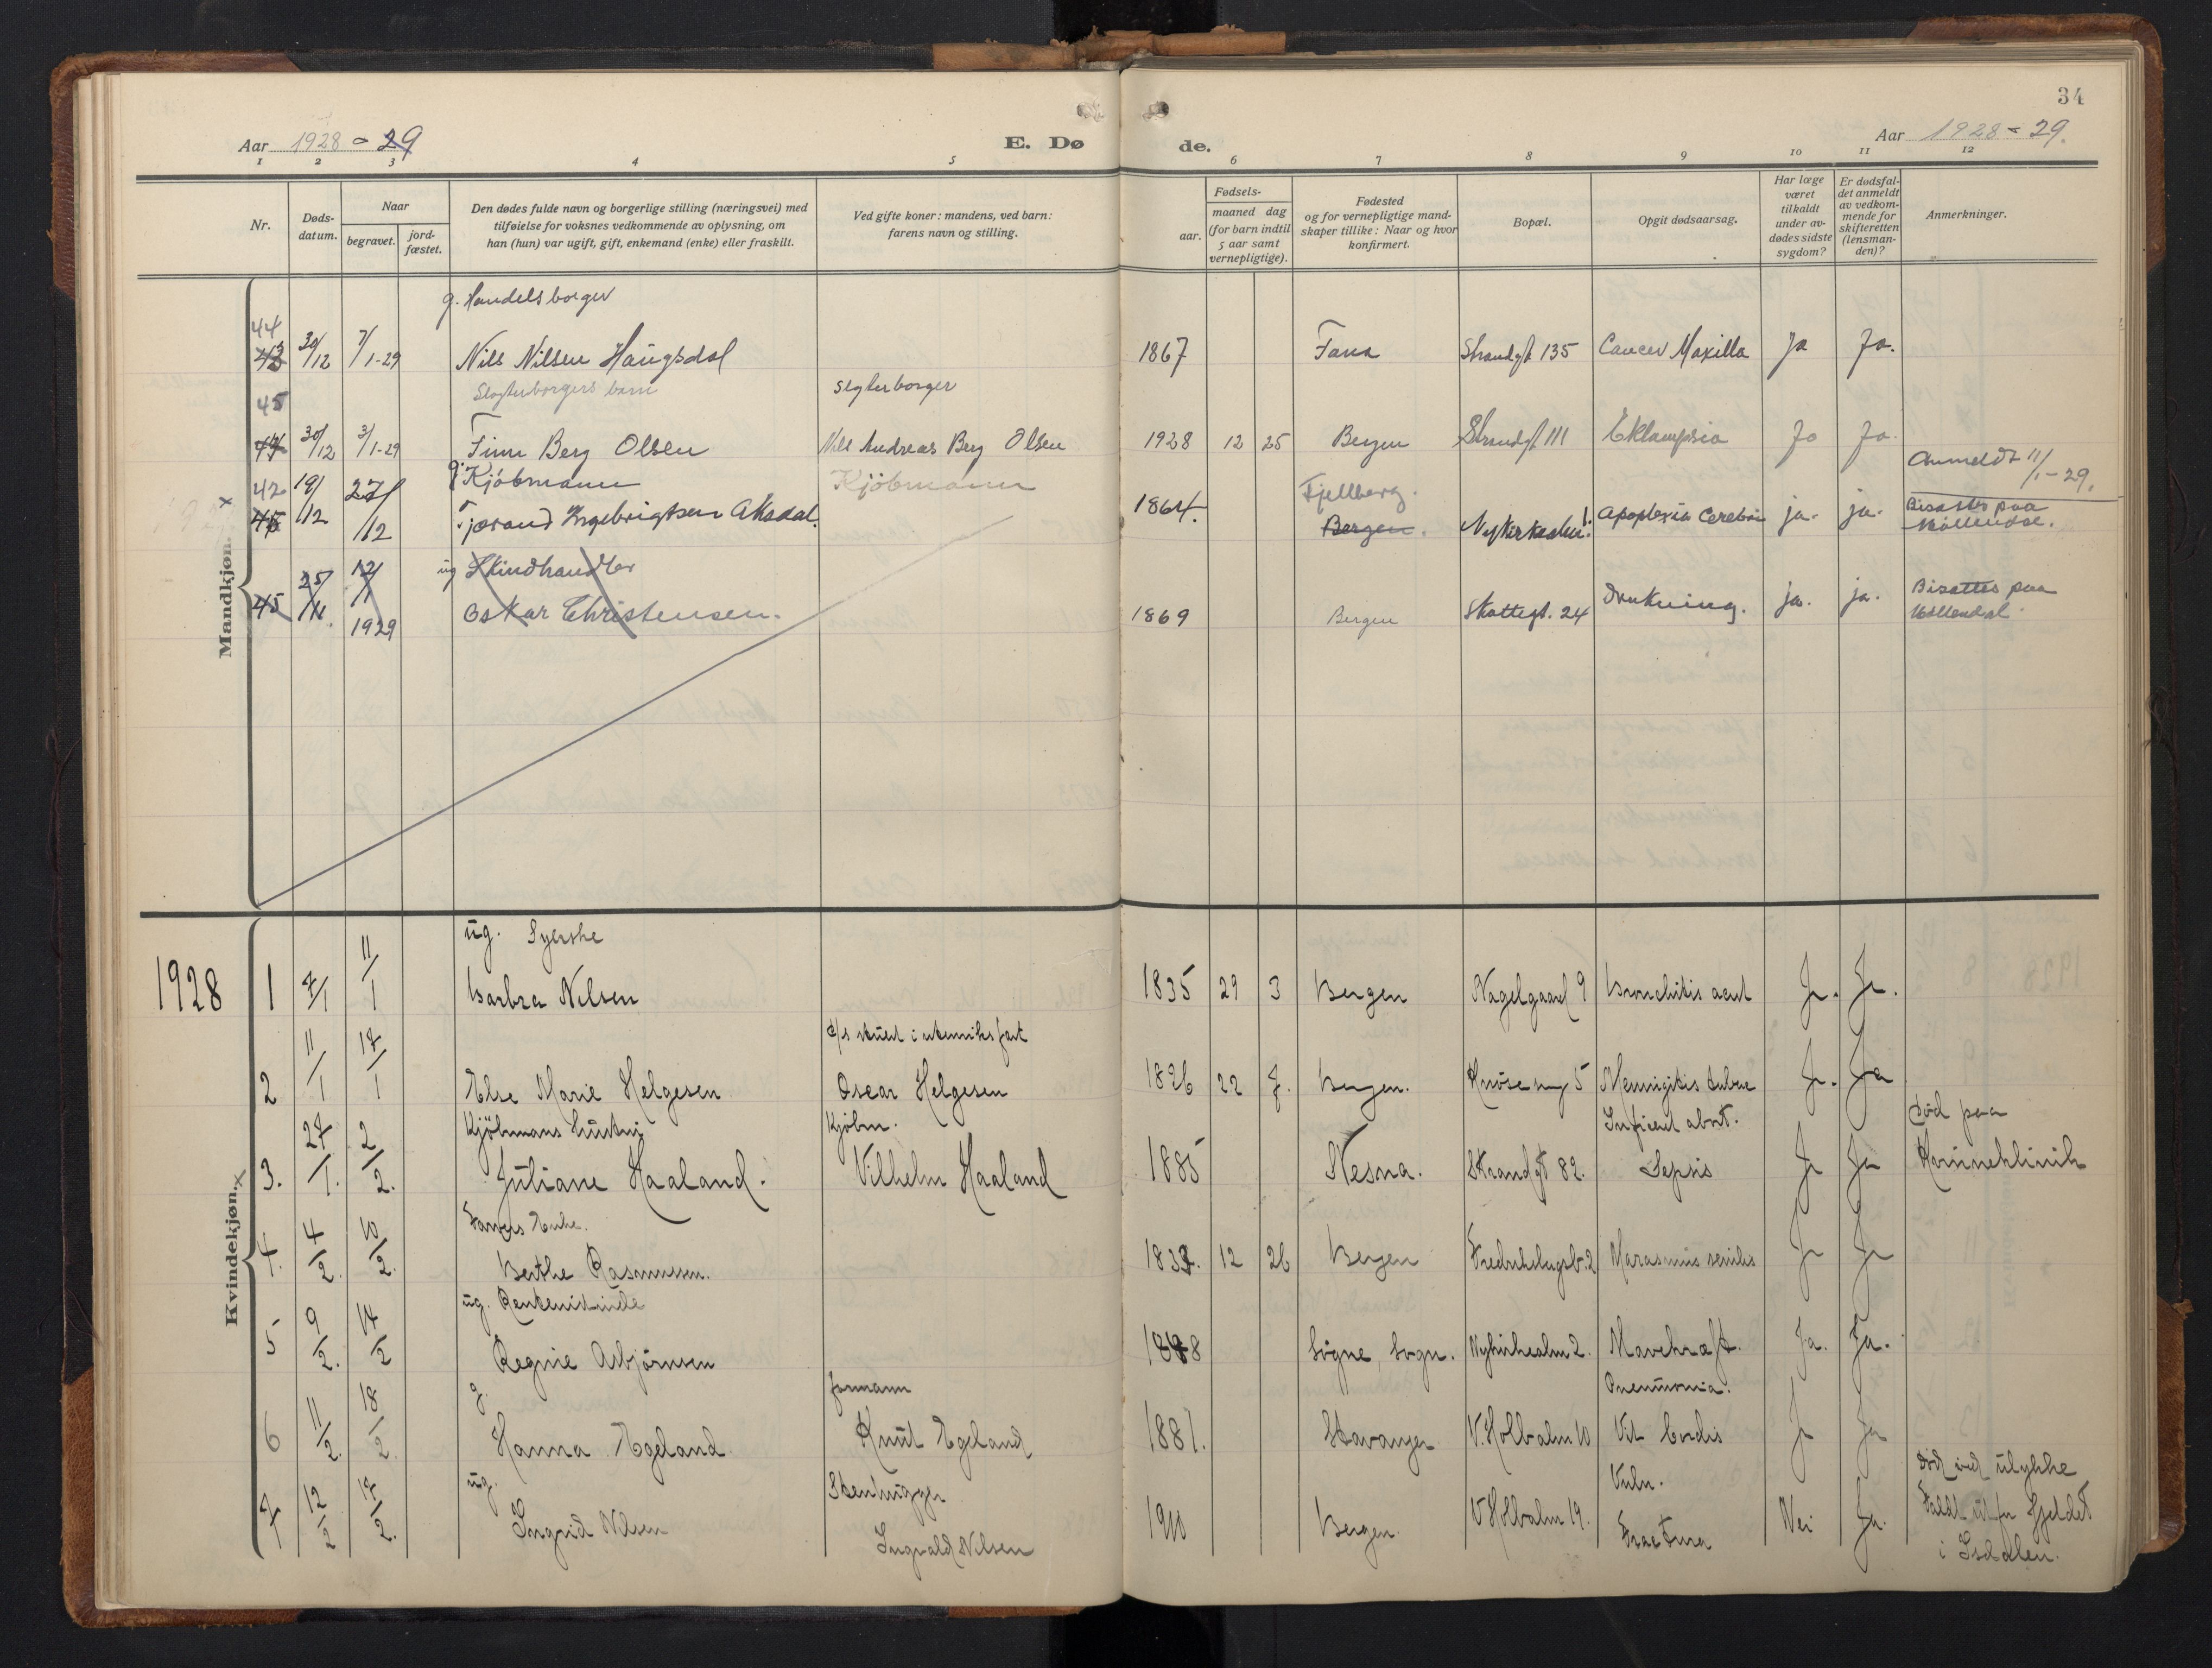 34
Aar 1928-29
E. Dø
de.
Aar 1928-29.
1 2 3 4 5 6 7 8 9 10 11 12
Nr.
Døds-
datum.
Naar
begravet.
jord-
fæstet.
Den dødes fulde navn og borgerlige stilling (næringsvei) med
tilføielse for voksnes vedkommende av oplysning, om
han (hun) var ugift, gift, enkemand (enke) eller fraskilt.
Ved gifte koner: mandens, ved barn:
farens navn og stilling.
Fødsels-
aar.
maaned dag
(for barn indtil
5 aar samt
vernepligtige).
Fødested
og for vernepligtige mand-
skaper tillike: Naar og hvor
konfirmert.
Bopæl.
Opgit dødsaarsag.
Har læge
været
tilkaldt
under av-
dødes sidste
sygdom?
Er dødsfal-
det anmeldt
av vedkom-
mende for
skifteretten
(lensman-
den)?
Anmerkninger.
Mandkjøn.
g. Handelsborger
44
43 30/12 7/1-29 Nils Nilsen Haugsdal 1867 Fana Strandgt 135 Cancer Maxilla Ja Ja.
45 Slagterborgers barn slgterborger
44 30/12 3/1-29 Finn Berg Olsen Nils Andreas Berg Olsen 1928 12 25 Bergen Strandgt 111 Eklampsia Ja Ja.
Anmeldt 11/1-29.
x 42 g. Kjøbmann Kjøbmann Fjellberg.
45 19/12 27/12 Tjærand Ingebrigtsen Aksdal. 1864. Bergen. Apoplexia Cerebri ja. ja. Bisattes paa
Møllendal.
ug Skindhandler
45 25/11. 12/1 1929 Oskar Christensen. 1869 Bergen Skottegt. 24 Drukning. ja. ja. Bisattes paa
Møllendal.
Kvindekjøn. x
ug. Syerske
1928 1 7/1 11/1 Barbra Nilsen 1835 29 3 Bergen Nagelgaard 9 Bronchitis acut Ja. Ja.
i utenriksfart
2 11/1 17/1 Else Marie Helgesen Oscar Helgesen 1826 22 7. Bergen. 5 Ja. Ja
Kjøbmans hustru Kjøbm. Inficeret abort. død paa
3. 27/1. 2/2. Juliane Haaland. Vilhelm Haaland 1885 Nesna. Strandgt 82. Sepsis Ja Ja Kvinneklinik
Enke.
4. 4/2. 10/2. Berthe Rasmussen. 12 26 Bergen Marasmus senilis Ja Ja
ug.
5 9/2. 14/2 Regine Asbjørnsen 1848 Sogn. Nykirkealm 2. Mavekræft. Ja. Ja.
g. formann Pneumonia.
6 11/2. 18/2. Hanna Egeland Knut Egeland 1881. Stavanger V. Holbalm 10 Vit. Cordis Ja Ja
ug. Stenhugger Vuln. død ved ulykke
7 12/2 17/2. Ingrid Nilsen Ingvald Nilsen 1910 Bergen V Holbalm 19. Fractura Nei Ja. Faldt ut for fjeldet
i Isdalen.